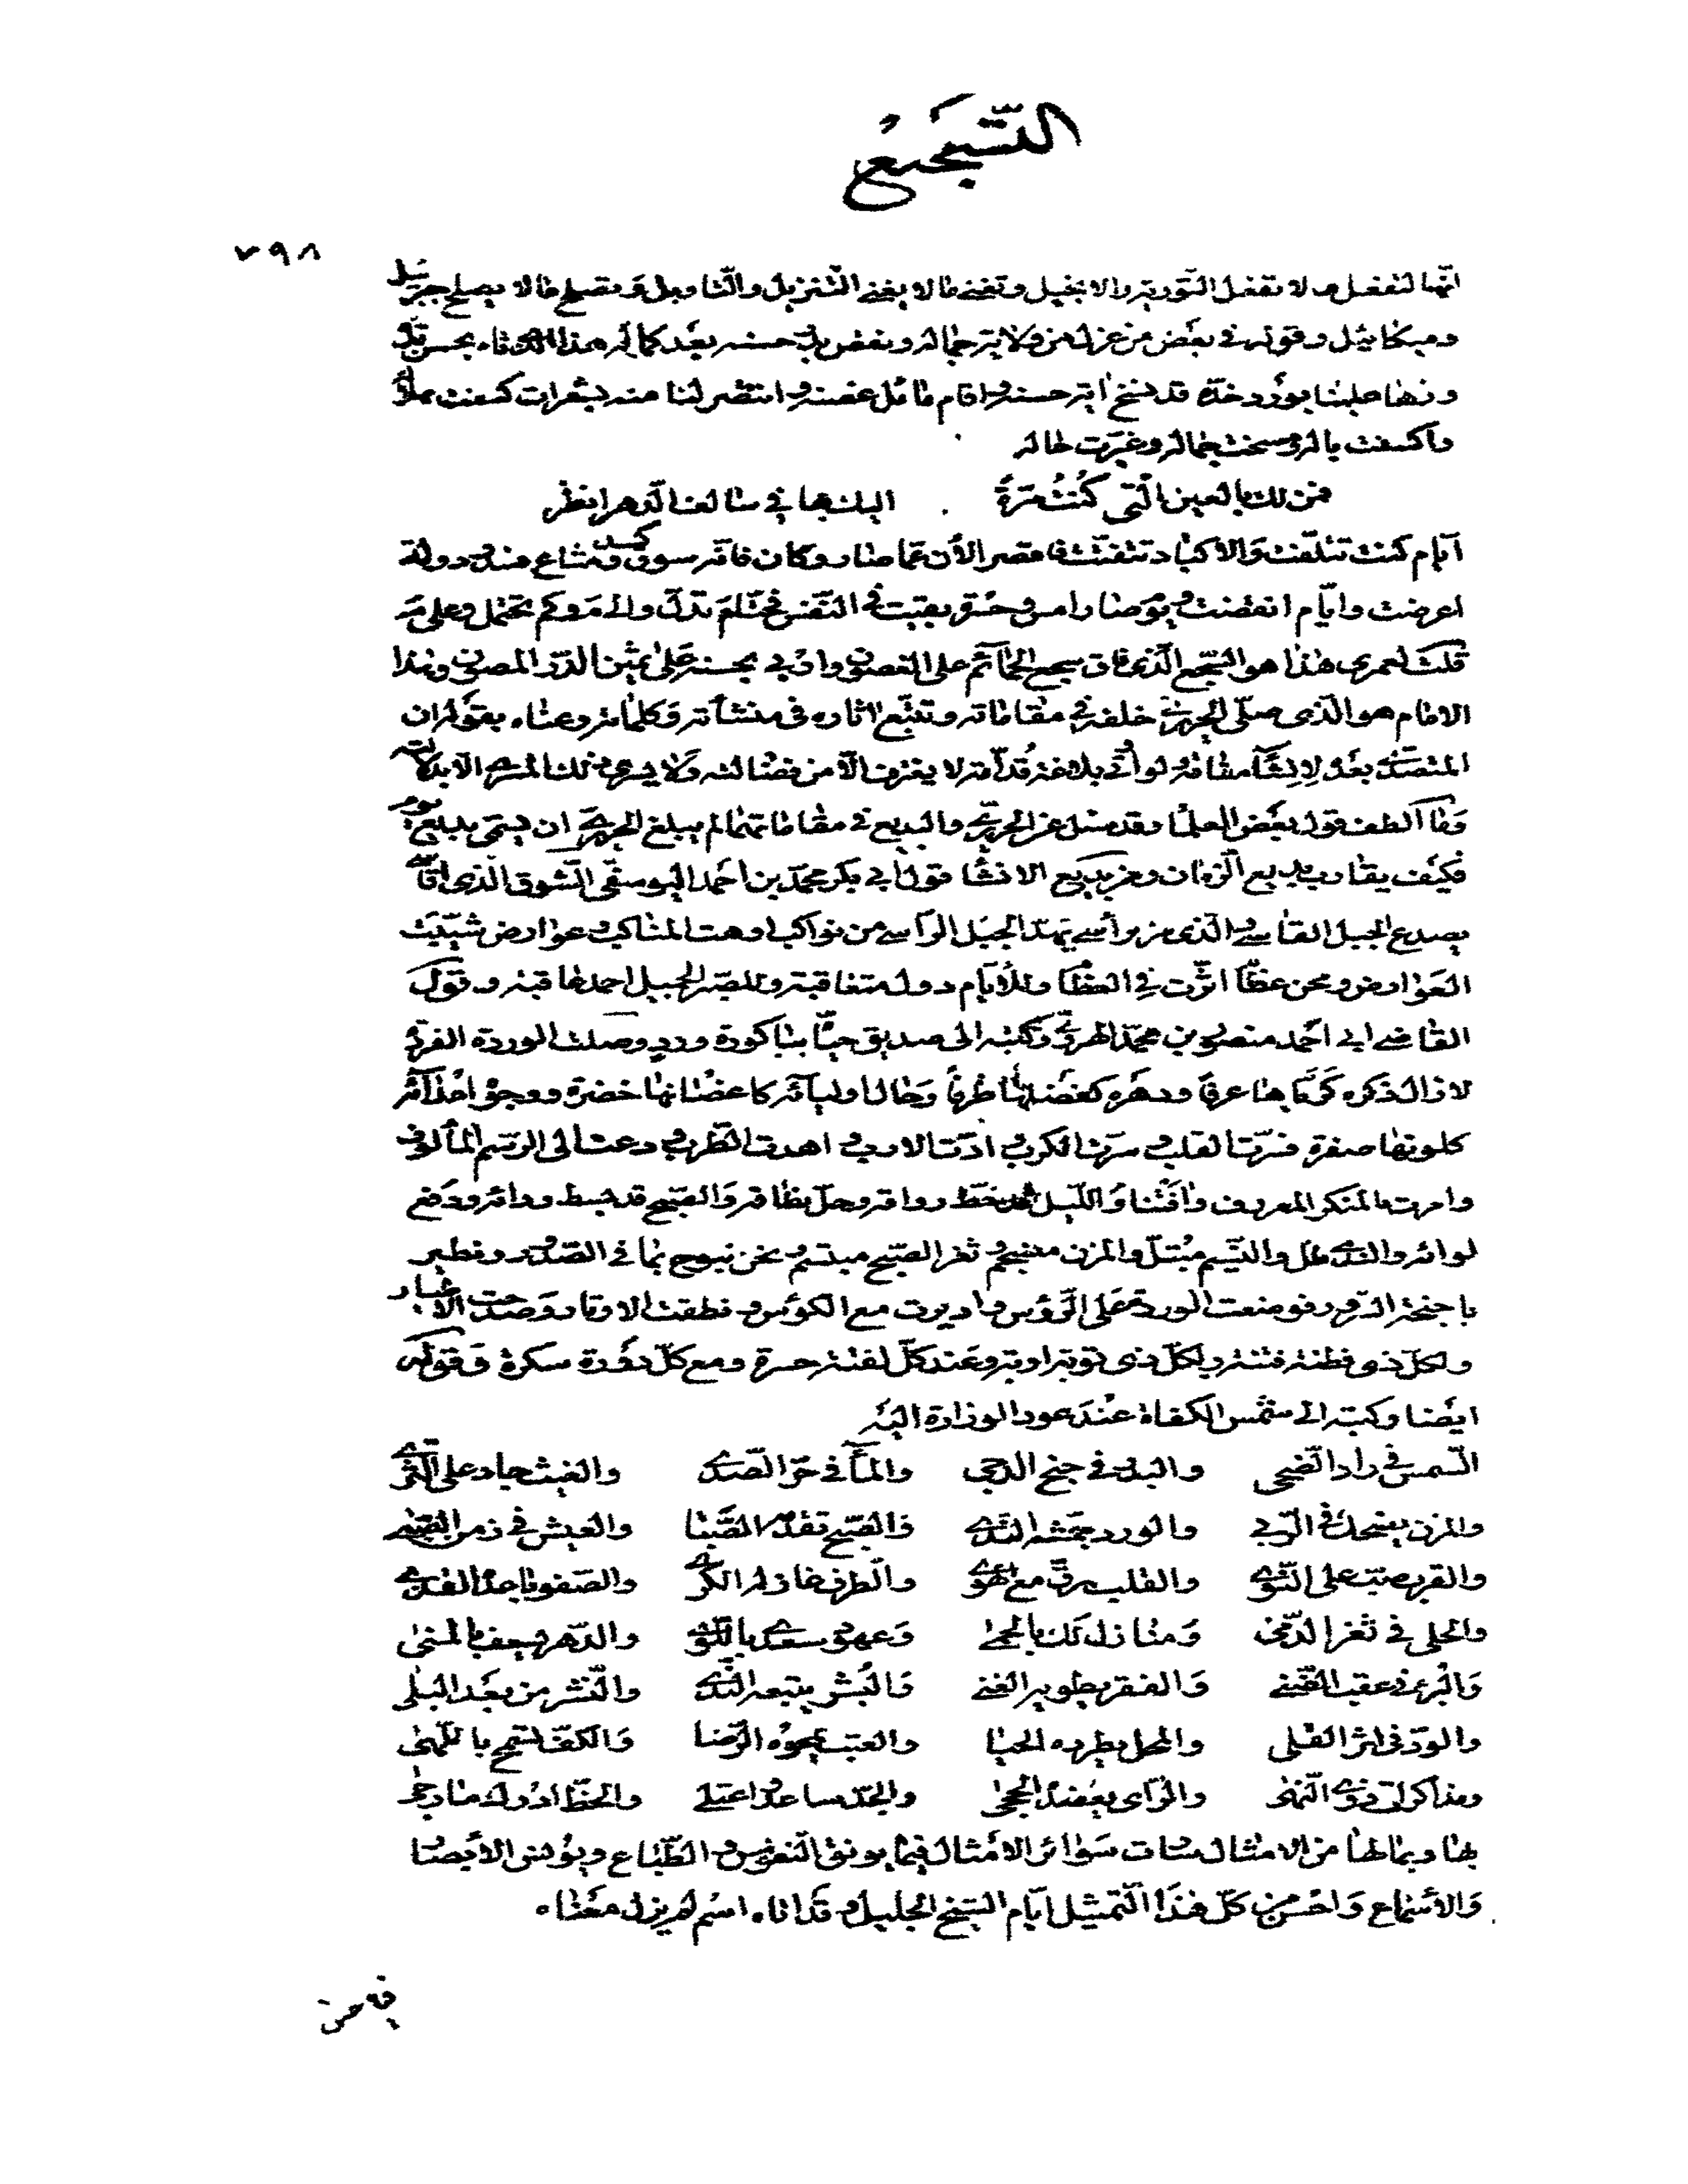 التسجيع
٧٩٨
انها لتفعل ما لا تفعل التورية والانجيل وتغنى ما لا يغنى التنزيل والتاويل وتصلح ما لا يصلح جبريل
وميكائيل وقوله فى بعض من عزل من ولاية جماله ونغص حسنه بعد كماله
وزها علينا بورد خده قد نسخ اية حسنه واقام مائل غصنه وانتصر لنا منه بشعرات كسفت هلاله
واكسفت باله ومسخت جماله وغيرت حاله
فمن لك بالعين التى كنت مرة اليك بها فى سالف الدهر انظر
ايام كنت تتلفت والاكباد تتفتت فاقصر الان عما صار وكان فانه سوق كسد ومتاع فسد ودولة
اعرضت وايام انقضت ويوم صار امس وحسرة بقيت فى النفس فحتام تدل والام وكم تحتمل وعلام
قلت لعمرى هذا هو السجع الذى فاق سجع الحمائم على الغصون وازرى بحسنه على ثمين الدر المصون وهذا
الامام هو الذى صلى الحريرى خلفه فى مقاماته وتتبع اثاره فى منشأته وكلماته وعناه بقوله ان
المتصدى بعده لانشاء مقامة ولو اوتى بلاغة قدامة لا يغترف الا من فضالته ولا يسرى ذلك المسرى الا بدلالته
وما الطف قول بعض العلما وقد سئل عن الحريرى والبديع فى مقاماتهما لم يبلغ الحريرى ان يسمى بديع يوم
فكيف يقارب بديع الزمان ومن بديع الانشا قول ابى بكر محمد بن احمد اليوسفى الشوق الذى اقاسى
يصدع الجبل القاسى والذى مر براسى يهد الجبل الراسى من نواكب اوهت المناكب وعوارض شيبت
العوارض ومحن عظام اثرت فى العظام وللايام دول متعاقبة وللصبر الجميل احمد عاقبة وقول
القاضى ابى احمد منصور بن محمد الهروى وكتبه الى صديق حياه بباكورة ورد وصلت الوردة الفردة
لا زال ذكره كرياها عرفا ودهره كفصلها ظرفا وحال اوليائه كاغصانها خضرة ووجوه اعدائه
كلونها صفرة فسرت القلب وسرت الكرب وادت الادب واهدت الطرب ودعت الى الرسم المألوف
وامرت بالمنكر المعروف وافتنا والليل قد حط رواقه وحل نطاقه والصبح قد بسط رداءه ورفع
لواءه والندى طل والنسيم مبتل والمزن منسجم وثغر الصبح مبتسم ونحن نبوح بما فى الصدور ونطير
باجنحة السرور فوضعت الوردة على الرؤس وادیرت مع الكؤس ونطقت الاوتار وصدحت الاطيار
ولكل ذى فطنة فتنة ولكل ذى توبة اوبة وعند كل لفتة حسرة ومع كل دورة سكرة وقوله
ايضا وكتبه الى شمس الكفاة عند عود الوزارة اليه
الشمس فى راد الضحى والبدر فى جنح الدجى والماء فى حر الصدى والغيث جاد على الثرى
والمزن يضحك فى الربى والورد جمشه الندى والصبح تقدمه الصبا والعيش فى زمن الصبى
والقرب صب على النوى والقلب رق مع الهوى والطرف غازله الكرى والصفو باعده القذى
والحلى فى ثغر الدمى ومنازل لك بالحمى وعهود سعدى باللوى والدهر يسعف بالمنى
والبرء فى عقب الضنى والفقر يطويه الغنى والبشر يتبعه الندى والنشر من بعد البلى
والود فى اثر القلى والمحل يطرده الحيا والعتب يمحوه الرضا والكف تسمح باللهى
ومذاكرات ذوى النهى والراى يعضده الحجى والجد ساعد اعتلى والحظ ادرك ما رجى
بها وبمالها من الامثال سارت سوائر الامثال فيما يونق النفوس والطباع ويؤنس الابصار
والاسماع واحسن من كل هذا التمثيل ايام الشيخ الجليل وقد اتاه اسم لم يزل معناه